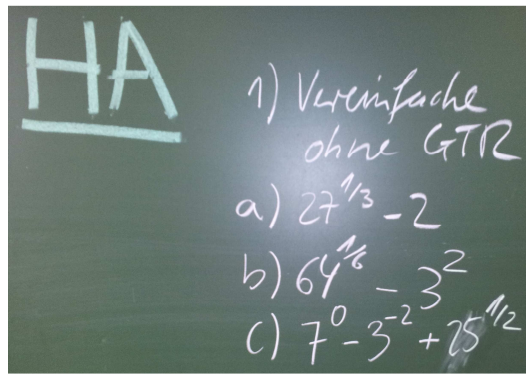 HA
1) Vereinfache
ohne GTR
a) 27^1/3 - 2
b) 64^1/6 - 3^2
c) 7^0 - 3^-2 + 25^1/2